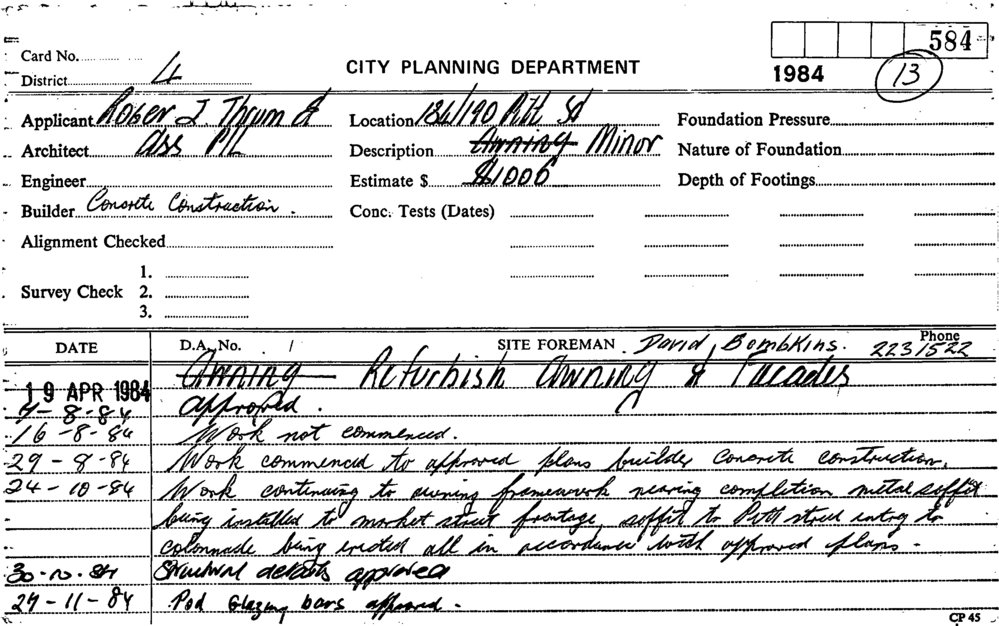 584
Card No.
District 4
CITY PLANNING DEPARTMENT
1984 13
Applicant Roger J Thrum & Location 184/190 Pitt St Foundation Pressure
Architect Ass P/L Description Awning Minor Nature of Foundation
Engineer Estimate $ $1006 Depth of Footings
Builder Concrete Construction. Conc. Tests (Dates)
Alignment Checked
1.
Survey Check 2.
3.
DATE D.A. No. / SITE FOREMAN David Bombkins. Phone 2231522
19 APR 1984 Awning Refurbish Awning & Facades
-8-84 approved.
16-8-84 Work not commenced.
29-8-84 Work commenced to approved plans builder Concrete construction.
24-10-84 Work continuing to awning framework nearing completion metal soffit
being installed to market street frontage, soffit to Pitt street entry to
colonnade being erected all in accordance with approved plans.
30-10-84 Structural details approved
29-11-84 Pod Glazing bars approved.
CP 45